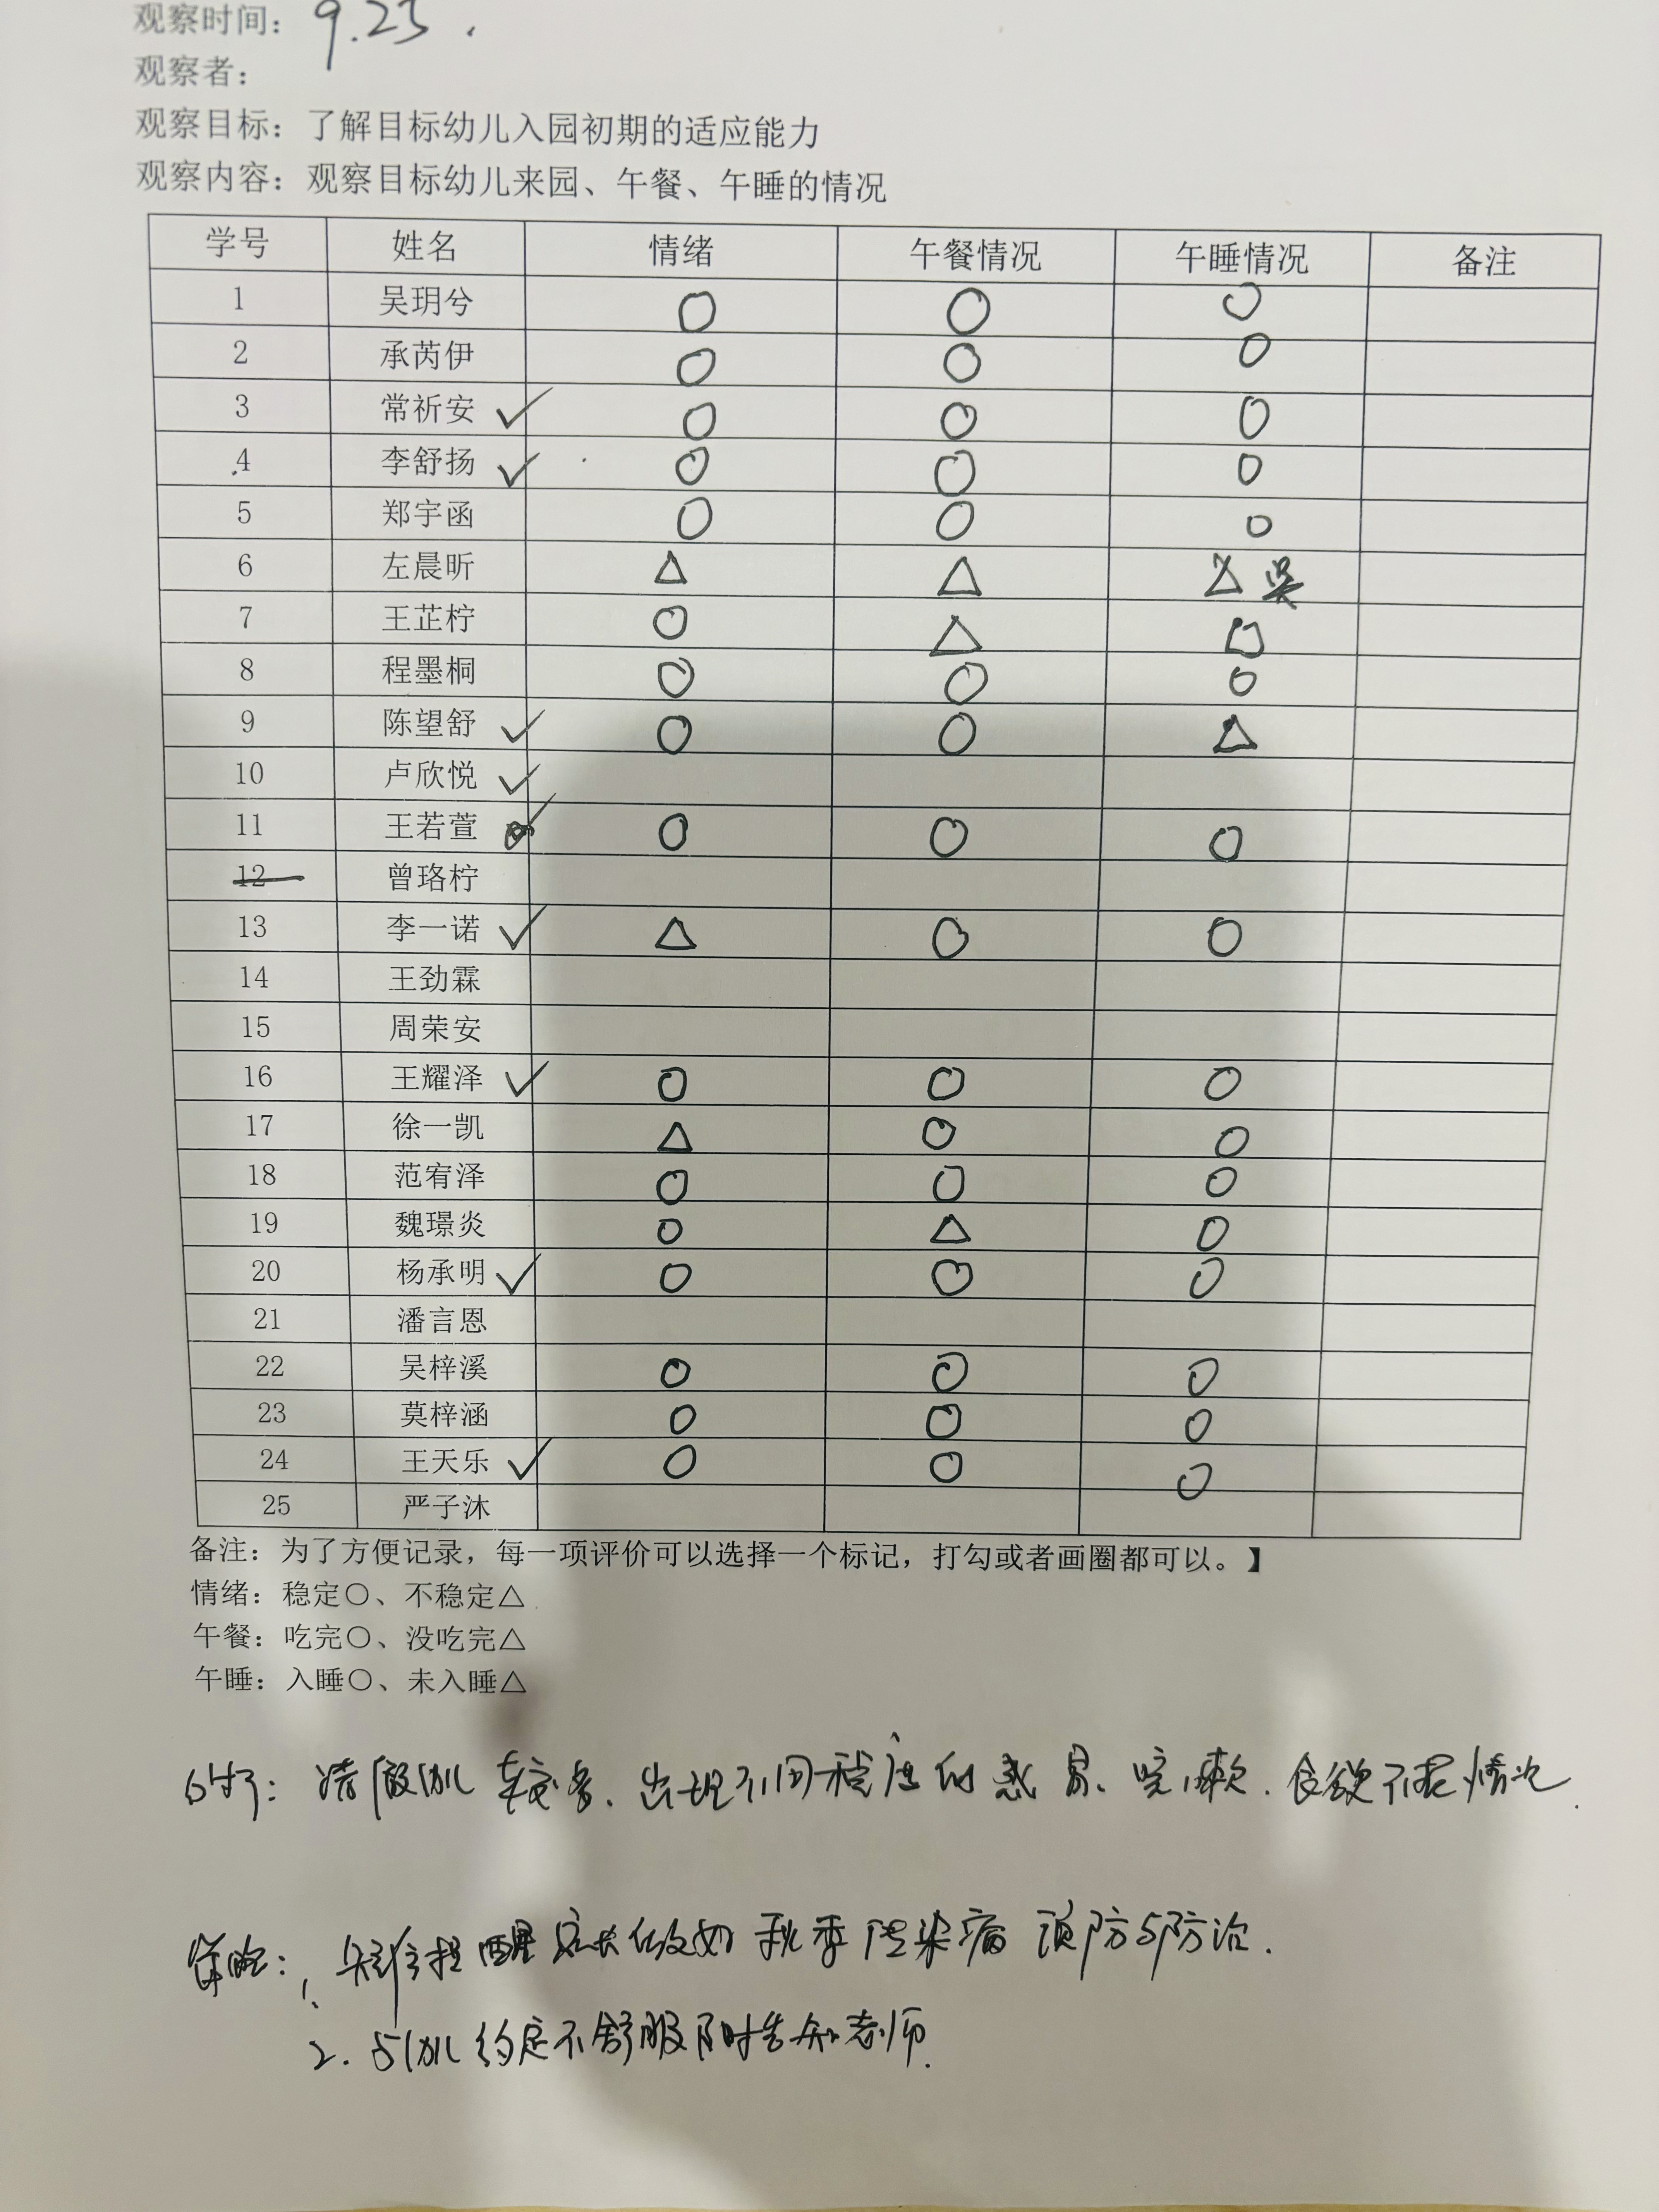 观察时间：9.23.
观察者：
观察目标：了解目标幼儿入园初期的适应能力
观察内容：观察目标幼儿来园、午餐、午睡的情况
学号 姓名 情绪 午餐情况 午睡情况 备注
1 吴玥兮 ○ ○ ○
2 承芮伊 ○ ○ ○
3 常祈安 ✓ ○ ○ ○
4 李舒扬 ✓ ○ ○ ○
5 郑宇函 ○ ○ ○
6 左晨昕 △ △ △
7 王芷柠 ○ △ ○
8 程墨桐 ○ ○ ○
9 陈望舒 ✓ ○ ○ △
10 卢欣悦 ✓
11 王若萱 ✓ ○ ○ ○
12 曾珞柠
13 李一诺 ✓ △ ○ ○
14 王劲霖
15 周荣安
16 王耀泽 ✓ ○ ○ ○
17 徐一凯 △ ○ ○
18 范宥泽 ○ ○ ○
19 魏璟炎 ○ △ ○
20 杨承明 ✓ ○ ○ ○
21 潘言恩
22 吴梓溪 ○ ○ ○
23 莫梓涵 ○ ○ ○
24 王天乐 ✓ ○ ○ ○
25 严子沐
备注：为了方便记录，每一项评价可以选择一个标记，打勾或者画圈都可以。】
情绪：稳定○、不稳定△
午餐：吃完○、没吃完△
午睡：入睡○、未入睡△
分析：请假幼儿较多、出现不同程度的感冒、咳嗽、食欲不振情况.
策略：1、短信提醒家长做好秋季传染病预防与防治.
2. 与幼儿约定不舒服及时告知老师.